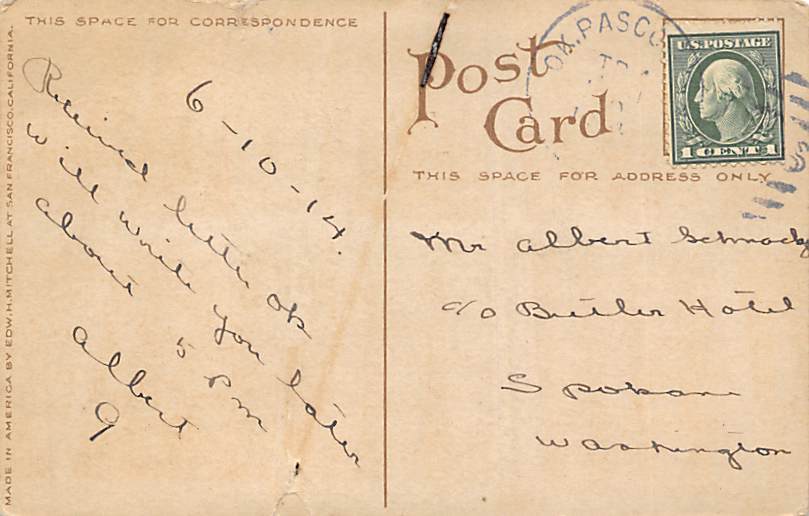 THIS SPACE FOR CORRESPONDENCE
6-10-14.
Received letter ok
will write you later
about 5 pm
Albert
9
MADE IN AMERICA BY EDW. H. MITCHELL AT SAN FRANCISCO, CALIFORNIA.
Post
Card
THIS SPACE FOR ADDRESS ONLY
PASCO
U.S. POSTAGE
1 CENT 1
Mr Albert
c/o Butler Hotel
Spokane
Washington